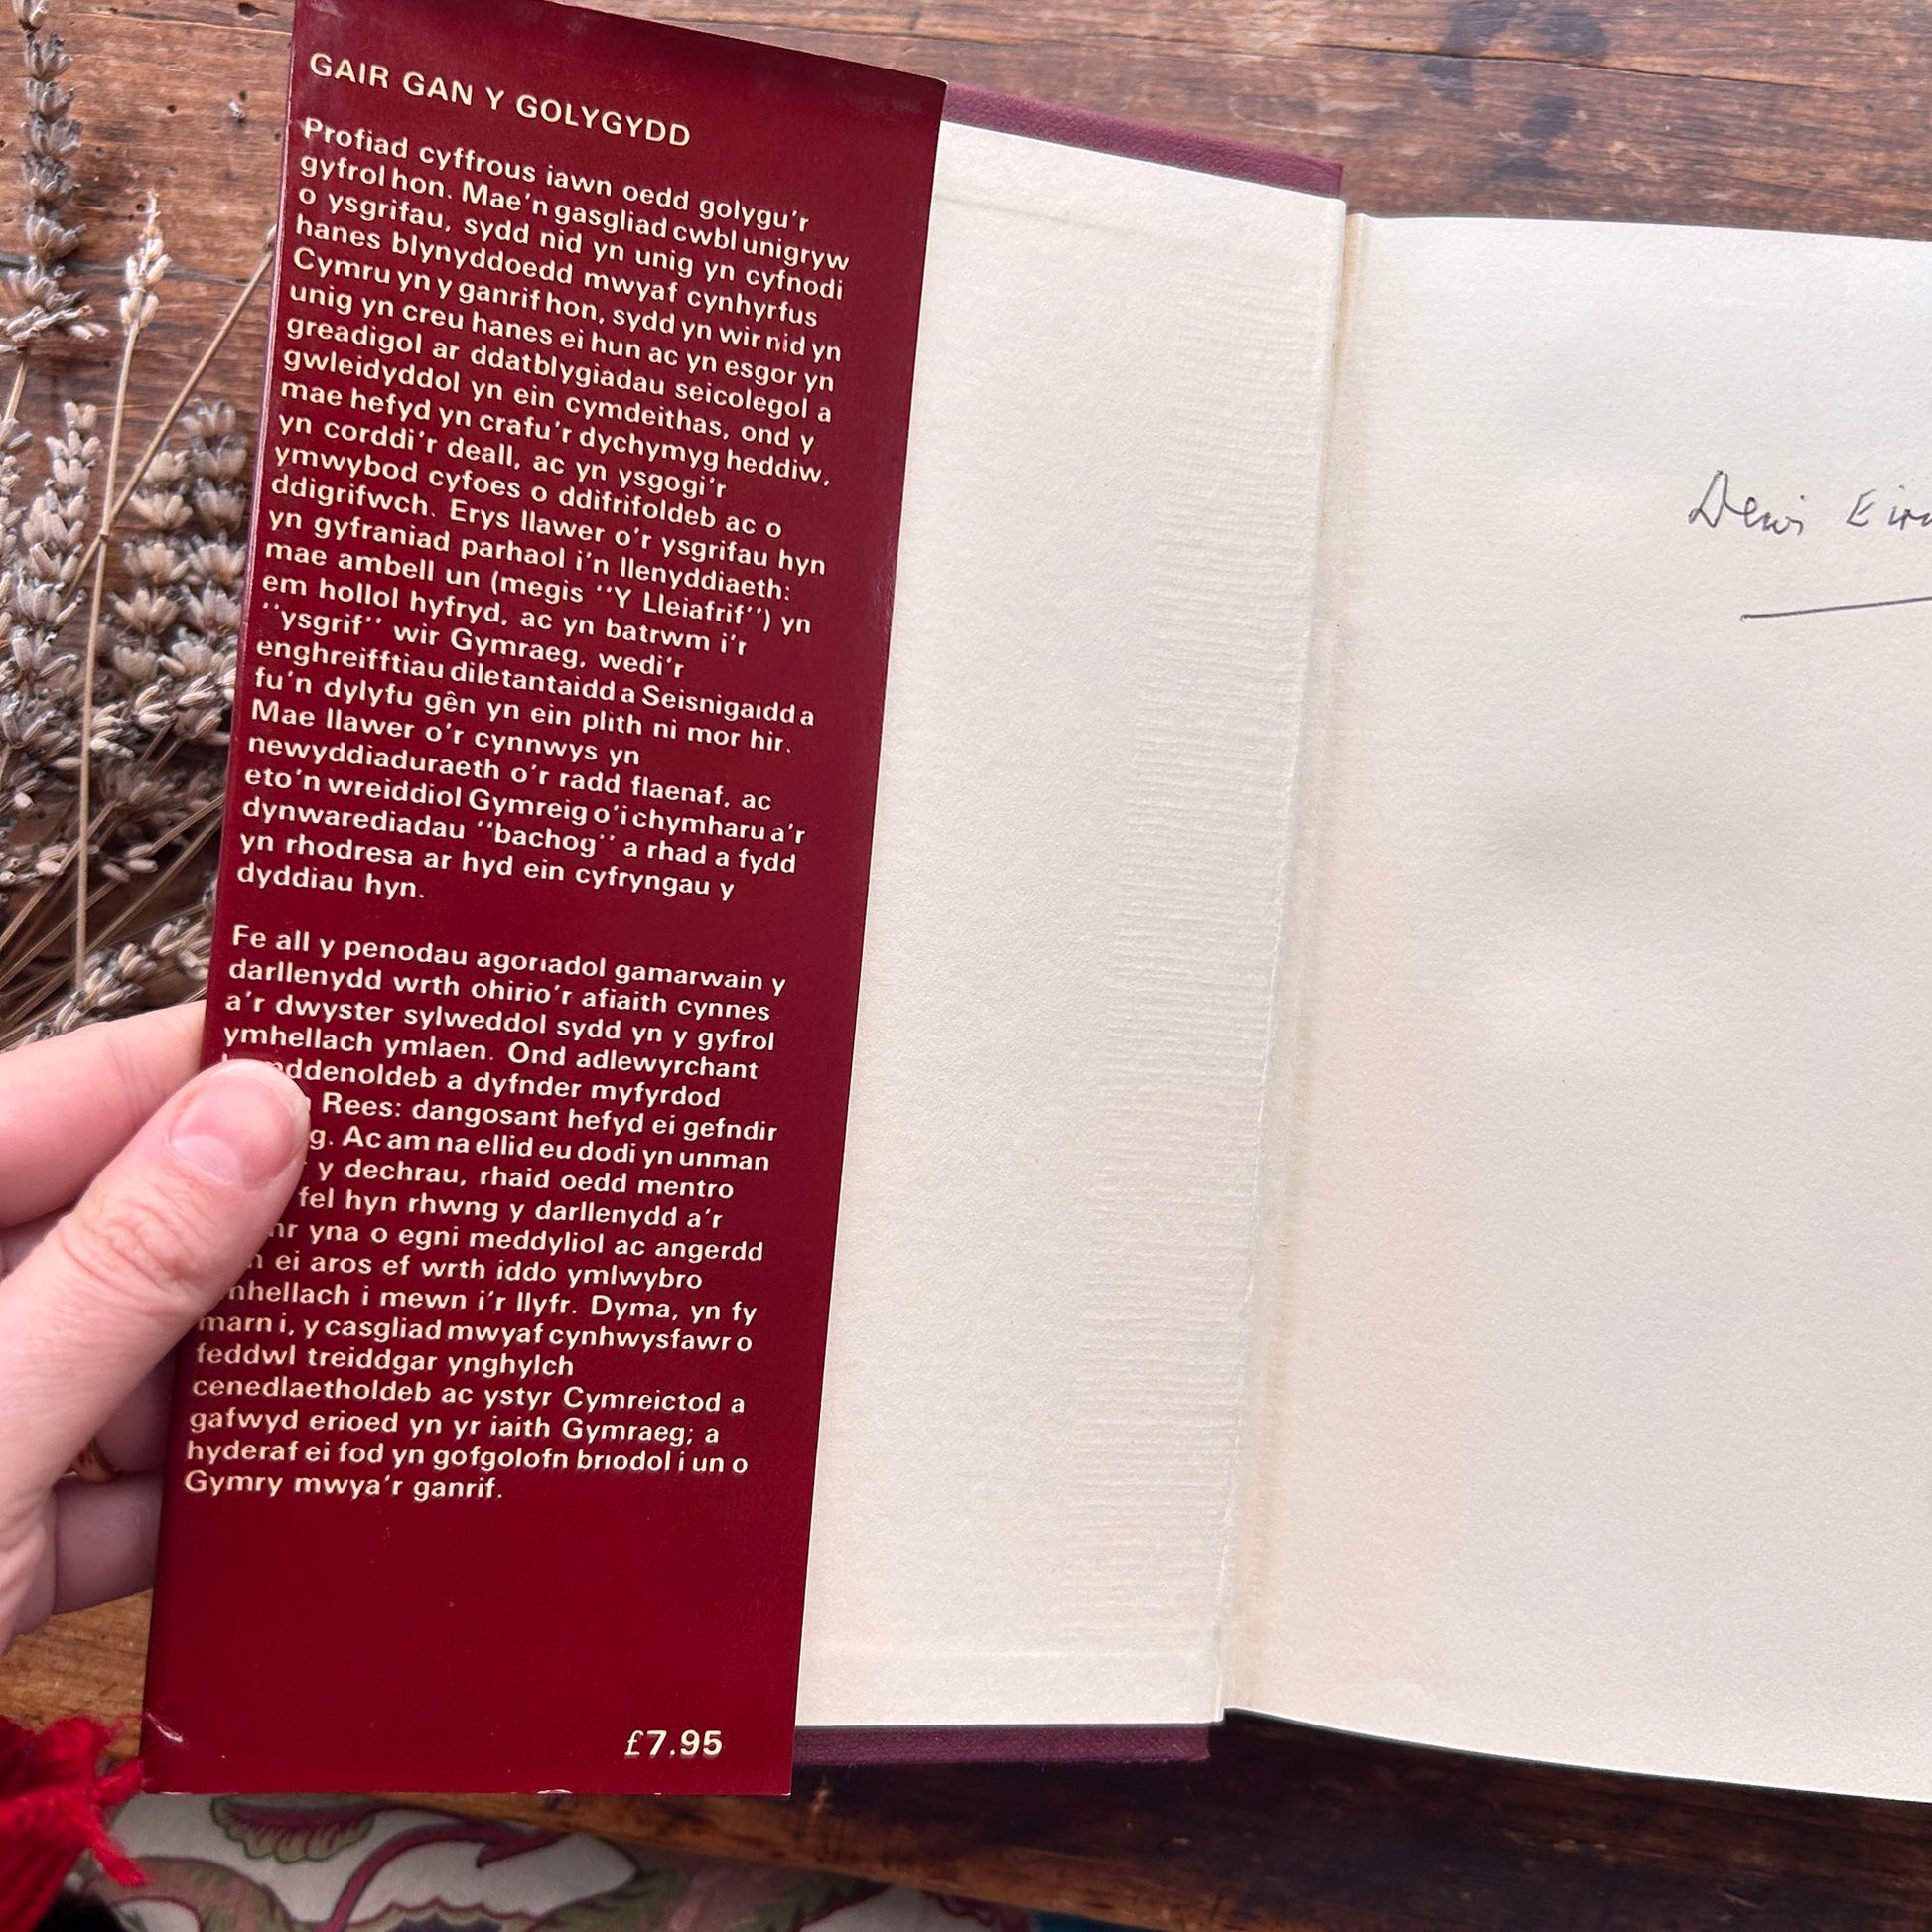 GAIR GAN Y GOLYGYDD
Profiad cyffrous iawn oedd golygu'r
gyfrol hon. Mae'n gasgliad cwbl unigryw
o ysgrifau, sydd nid yn unig yn cyfnodi
hanes blynyddoedd mwyaf cynhyrfus
Cymru yn y ganrif hon, sydd yn wir nid yn
unig yn creu hanes ei hun ac yn esgor yn
greadigol ar ddatblygiadau seicolegol a
gwleidyddol yn ein cymdeithas, ond y
mae hefyd yn crafu'r dychymyg heddiw,
yn corddi'r deall, ac yn ysgogi'r
ymwybod cyfoes o ddifrifoldeb ac o
ddigrifwch. Erys llawer o'r ysgrifau hyn
yn gyfraniad parhaol i'n llenyddiaeth:
mae ambell un (megis ''Y Lleiafrif'') yn
em hollol hyfryd, ac yn batrwm i'r
''ysgrif'' wir Gymraeg, wedi'r
enghreifftiau diletantaidd a Seisnigaidd a
fu'n dylyfu gên yn ein plith ni mor hir.
Mae llawer o'r cynnwys yn
newyddiaduraeth o'r radd flaenaf, ac
eto'n wreiddiol Gymreig o'i chymharu a'r
dynwarediadau ''bachog'' a rhad a fydd
yn rhodresa ar hyd ein cyfryngau y
dyddiau hyn.
Fe all y penodau agoriadol gamarwain y
darllenydd wrth ohirio'r afiaith cynnes
a'r dwyster sylweddol sydd yn y gyfrol
ymhellach ymlaen. Ond adlewyrchant
a dyfnder myfyrdod
Rees: dangosant hefyd ei gefndir
Ac am na ellid eu dodi yn unman
y dechrau, rhaid oedd mentro
fel hyn rhwng y darllenydd a'r
yna o egni meddyliol ac angerdd
ei aros ef wrth iddo ymlwybro
i mewn i'r llyfr. Dyma, yn fy
marn i, y casgliad mwyaf cynhwysfawr o
feddwl treiddgar ynghylch
cenedlaetholdeb ac ystyr Cymreictod a
gafwyd erioed yn yr iaith Gymraeg; a
hyderaf ei fod yn gofgolofn briodol i un o
Gymry mwya'r ganrif.
£7.95
Dewi